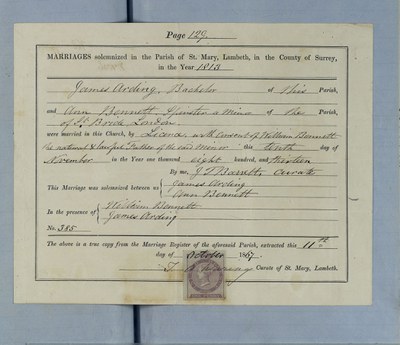 Page 129.
MARRIAGES solemnized in the Parish of St. Mary, Lambeth, in the County of Surrey,
in the Year 1813
James Arding, Bachelor of this Parish,
and Ann Bennett Spinster a Minor of the Parish,
of St Bride London
were married in this Church, by Licence with Consent of William Bennett
the natural & lawful Father of the said Minor this tenth day of
November in the Year one thousand eight hundred, and thirteen
By me, J T Barrett, Curate
This Marriage was solemnized between us { James Arding
Ann Bennett
In the presence of { William Bennett
James Arding
No. 385
The above is a true copy from the Marriage Register of the aforesaid Parish, extracted this 11th
day of October 1867.
Curate of St. Mary, Lambeth.